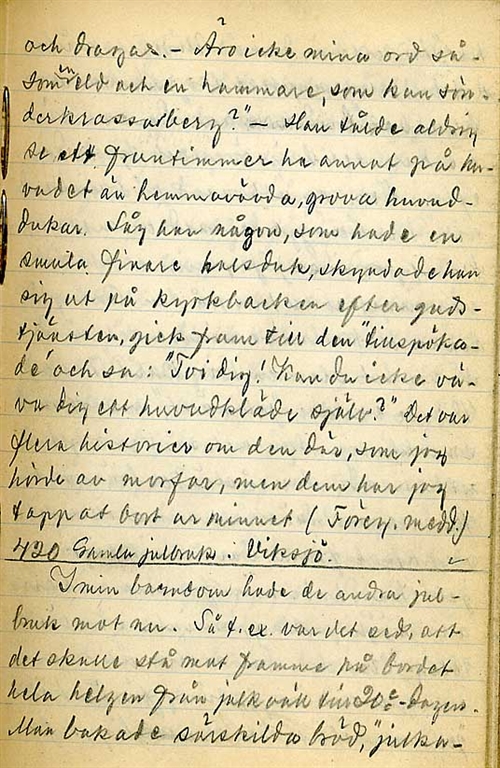 och dragar. – Äro icke mina ord så-
som en eld och en hammare, som kan sön-
derkrossa berg?" – Han tålde aldrig
se ett fruntimmer ha annat på hu-
vudet än hemmavävda, grova huvud-
dukar. Såg han någon, som hade en
smula finare halsduk, skyndade han
sig ut på kyrkbacken efter guds-
tjänsten, gick fram till den "tillspöka-
de" och sa: "Tvi dig! Kan du icke vä-
va dig ett huvudkläde själv?" Det var
flera historier om den där, som jag
hörde av morfar, men dem har jag
tappat bort ur minnet (Föreg. medd.)
420 Gamla julbruk i Viksjö.
I min barndom hade de andra jul-
bruk mot nu. Så t. ex. var det sed, att
det skulle stå mat framme på bordet
hela helgen från julkväll till 20:e-dagen.
Man bakade särskilda bröd, "julka-